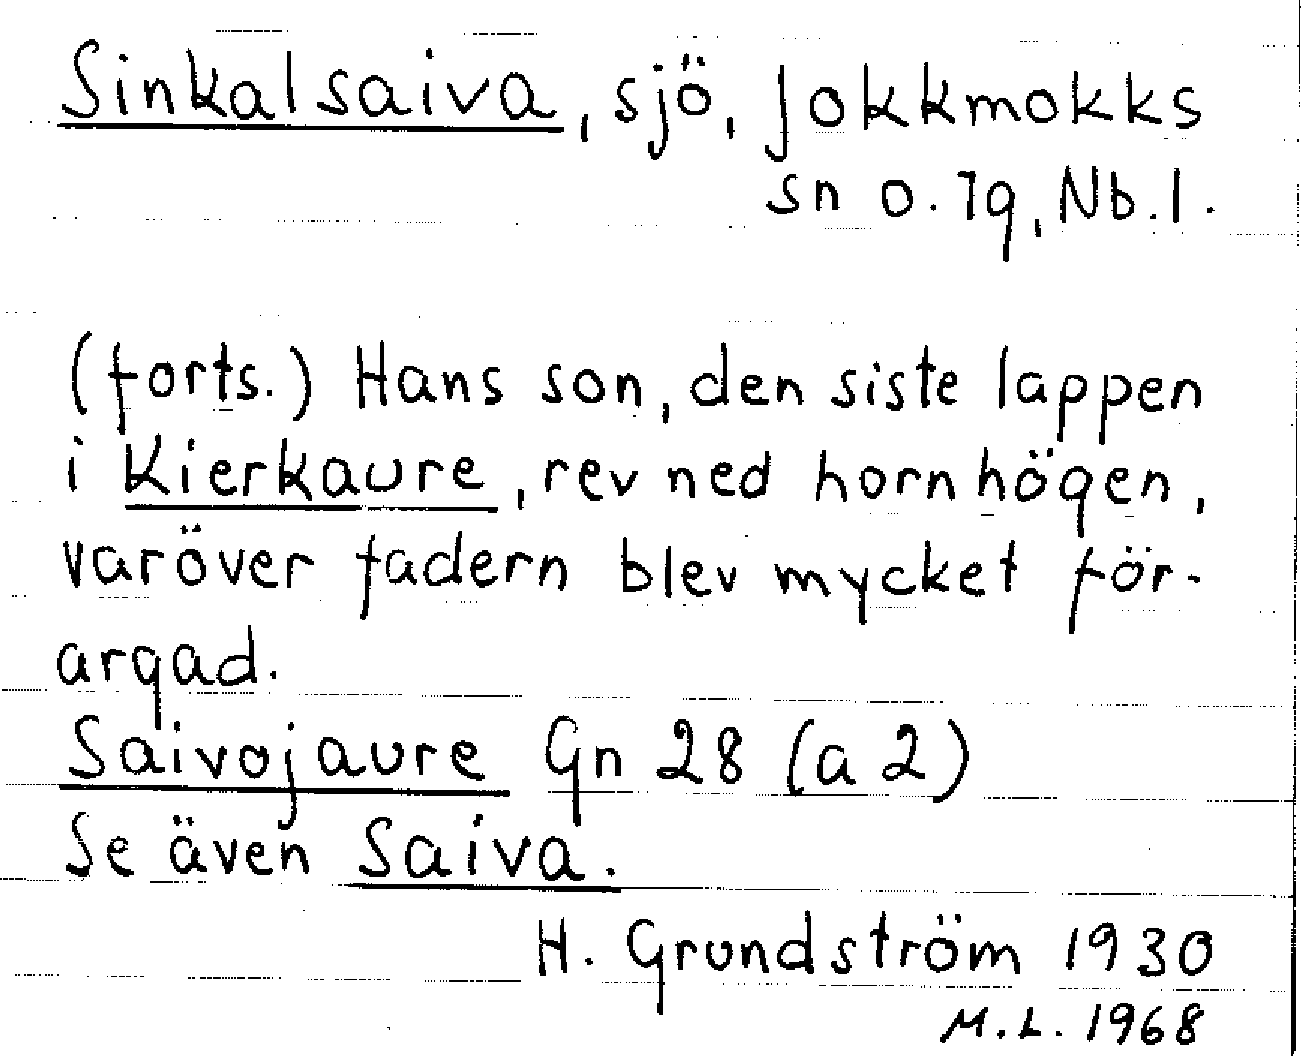 Sinkalsaiva, sjö, Jokkmokks
sn o. lg, Nb.l.
(forts.) Hans son, den siste lappen
i Kierkaure, rev ned hornhögen,
varöver fadern blev mycket för-
argad.
Saivojaure Gn 28 (a 2)
Se även Saiva.
H. Grundström 1930
M.L. 1968